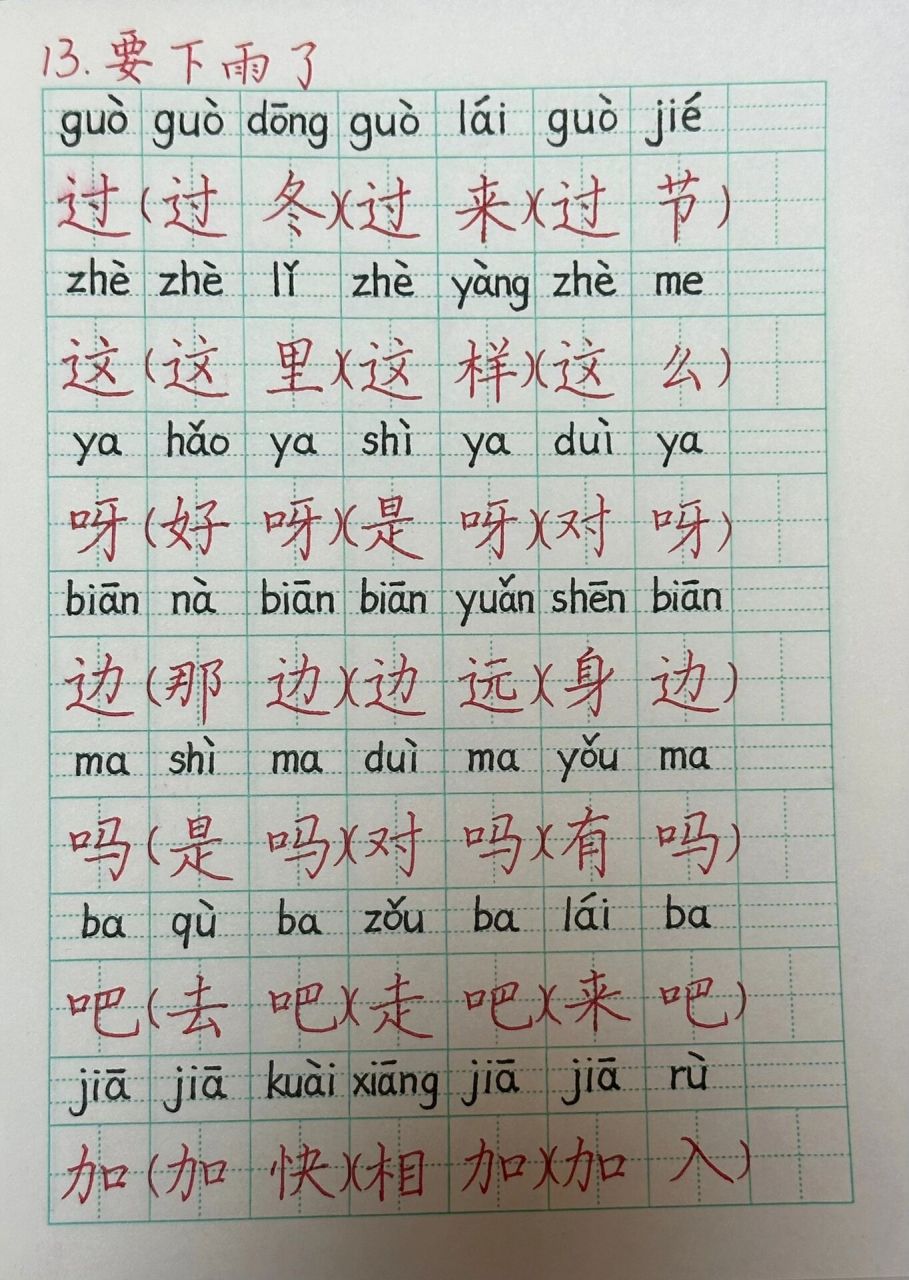 13. 要下雨了
guò guò dōng guò lái guò jié
过(过冬)(过来)(过节)
zhè zhè lǐ zhè yàng zhè me
这(这里)(这样)(这么)
ya hǎo ya shì ya duì ya
呀(好呀)(是呀)(对呀)
biān nà biān biān yuǎn shēn biān
边(那边)(边远)(身边)
ma shì ma duì ma yǒu ma
吗(是吗)(对吗)(有吗)
ba qù ba zǒu ba lái ba
吧(去吧)(走吧)(来吧)
jiā jiā kuài xiāng jiā jiā rù
加(加快)(相加)(加入)